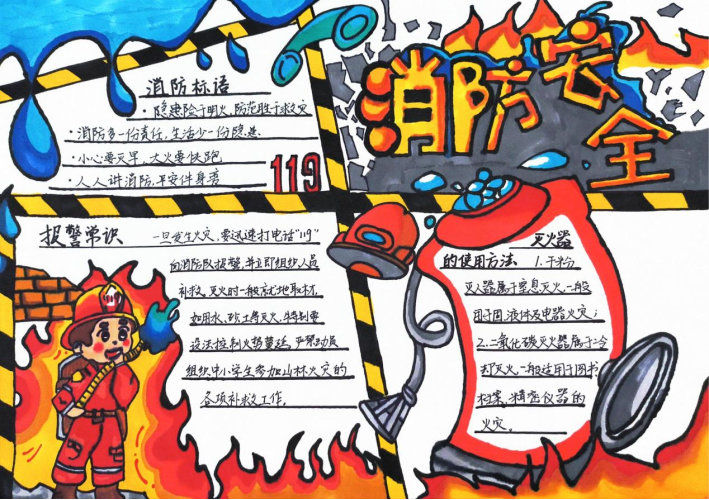 消防安全
消防标语
·隐患险于明火,防范胜于救灾
·消防多一份责任,生活少一份隐患
·小心要灭早,大火要快跑
·人人讲消防,平安伴身旁
119
报警常识 一旦发生火灾,要迅速打电话"119"
向消防队报警,并立即组织人员
补救,灭火时一般就地取材,
如用水、砂土等灭火,特别要
设法控制火势蔓延,严禁动员
组织中小学生参加山林火灾的
各项补救工作。
灭火器
的使用方法 1.干粉
灭火器属于窒息灭火,一般
用于固、液体及电器火灾;
2.二氧化碳灭火器属于冷
却灭火,一般适用于图书
档案、精密仪器的
火灾。